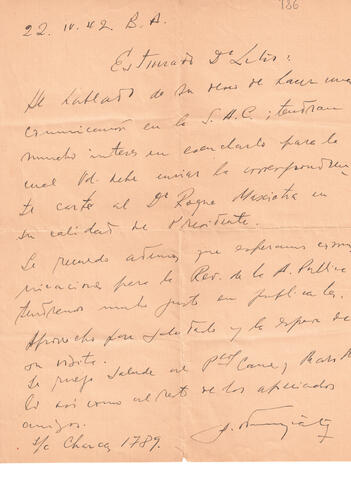 786
22. IV. 42 B. A.
Estimado Dr
He hablado de su deseo de hacer una
comunicación en la S. A. C.; tendran
mucho interes en escucharlo para lo
cual Vd. debe enviar la correspondien
te carta al Dr Roque en
su calidad de Presidente.
Le recuerdo ademas que esperamos comu
nicaciones para la Rev. de la A.
tendremos mucho gusto en publicarlas.
Aprovecho para saludarlo y la espera de
su visita.
Le ruego salude al Prof
asi como al resto de los apreciados
amigos.
s/c Charcas 1789.